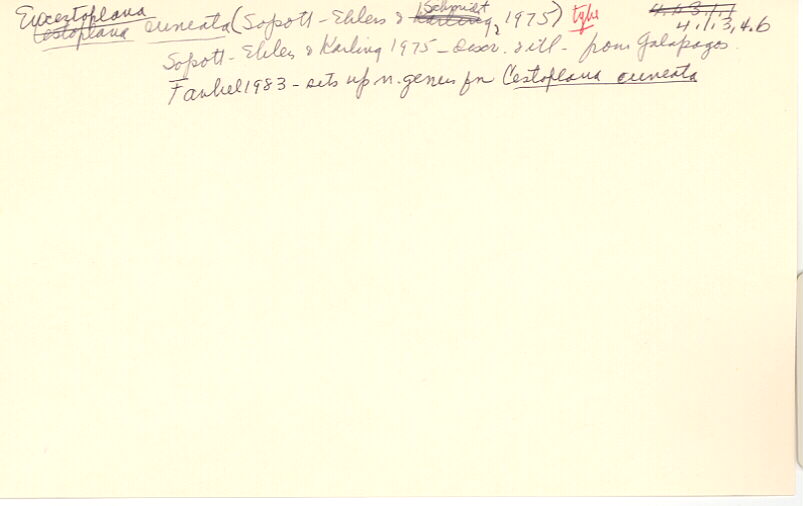 Eucestoplana
Cestoplana cuneata (Sopott-Ehlers & Karling Schmidt, 1975) type 4.1.3.4.6
Sopott-Ehlers & Karling 1975 - descr. & ill - from Galapagos.
Faubel 1983 - sets up n. genus for Cestoplana cuneata